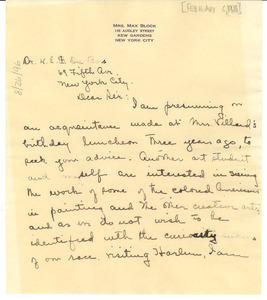 MRS. MAX BLOCK
115 AUDLEY STREET
KEW GARDENS
NEW YORK CITY
[FEBRUARY
Dr. W. E. B. Du Bois
69 Fifth Ave.
New York City.
Dear Sir:
I am presuming on
an acquaintance made at Mrs. Villard's
birthday luncheon three years ago, to
seek your advice. Another art student
and myself are interested in seeing
the work of some of the colored Americans
in painting and the other creative arts
and as we do not wish to be
identified with the curiosity
of our race, visiting Harlem, I am